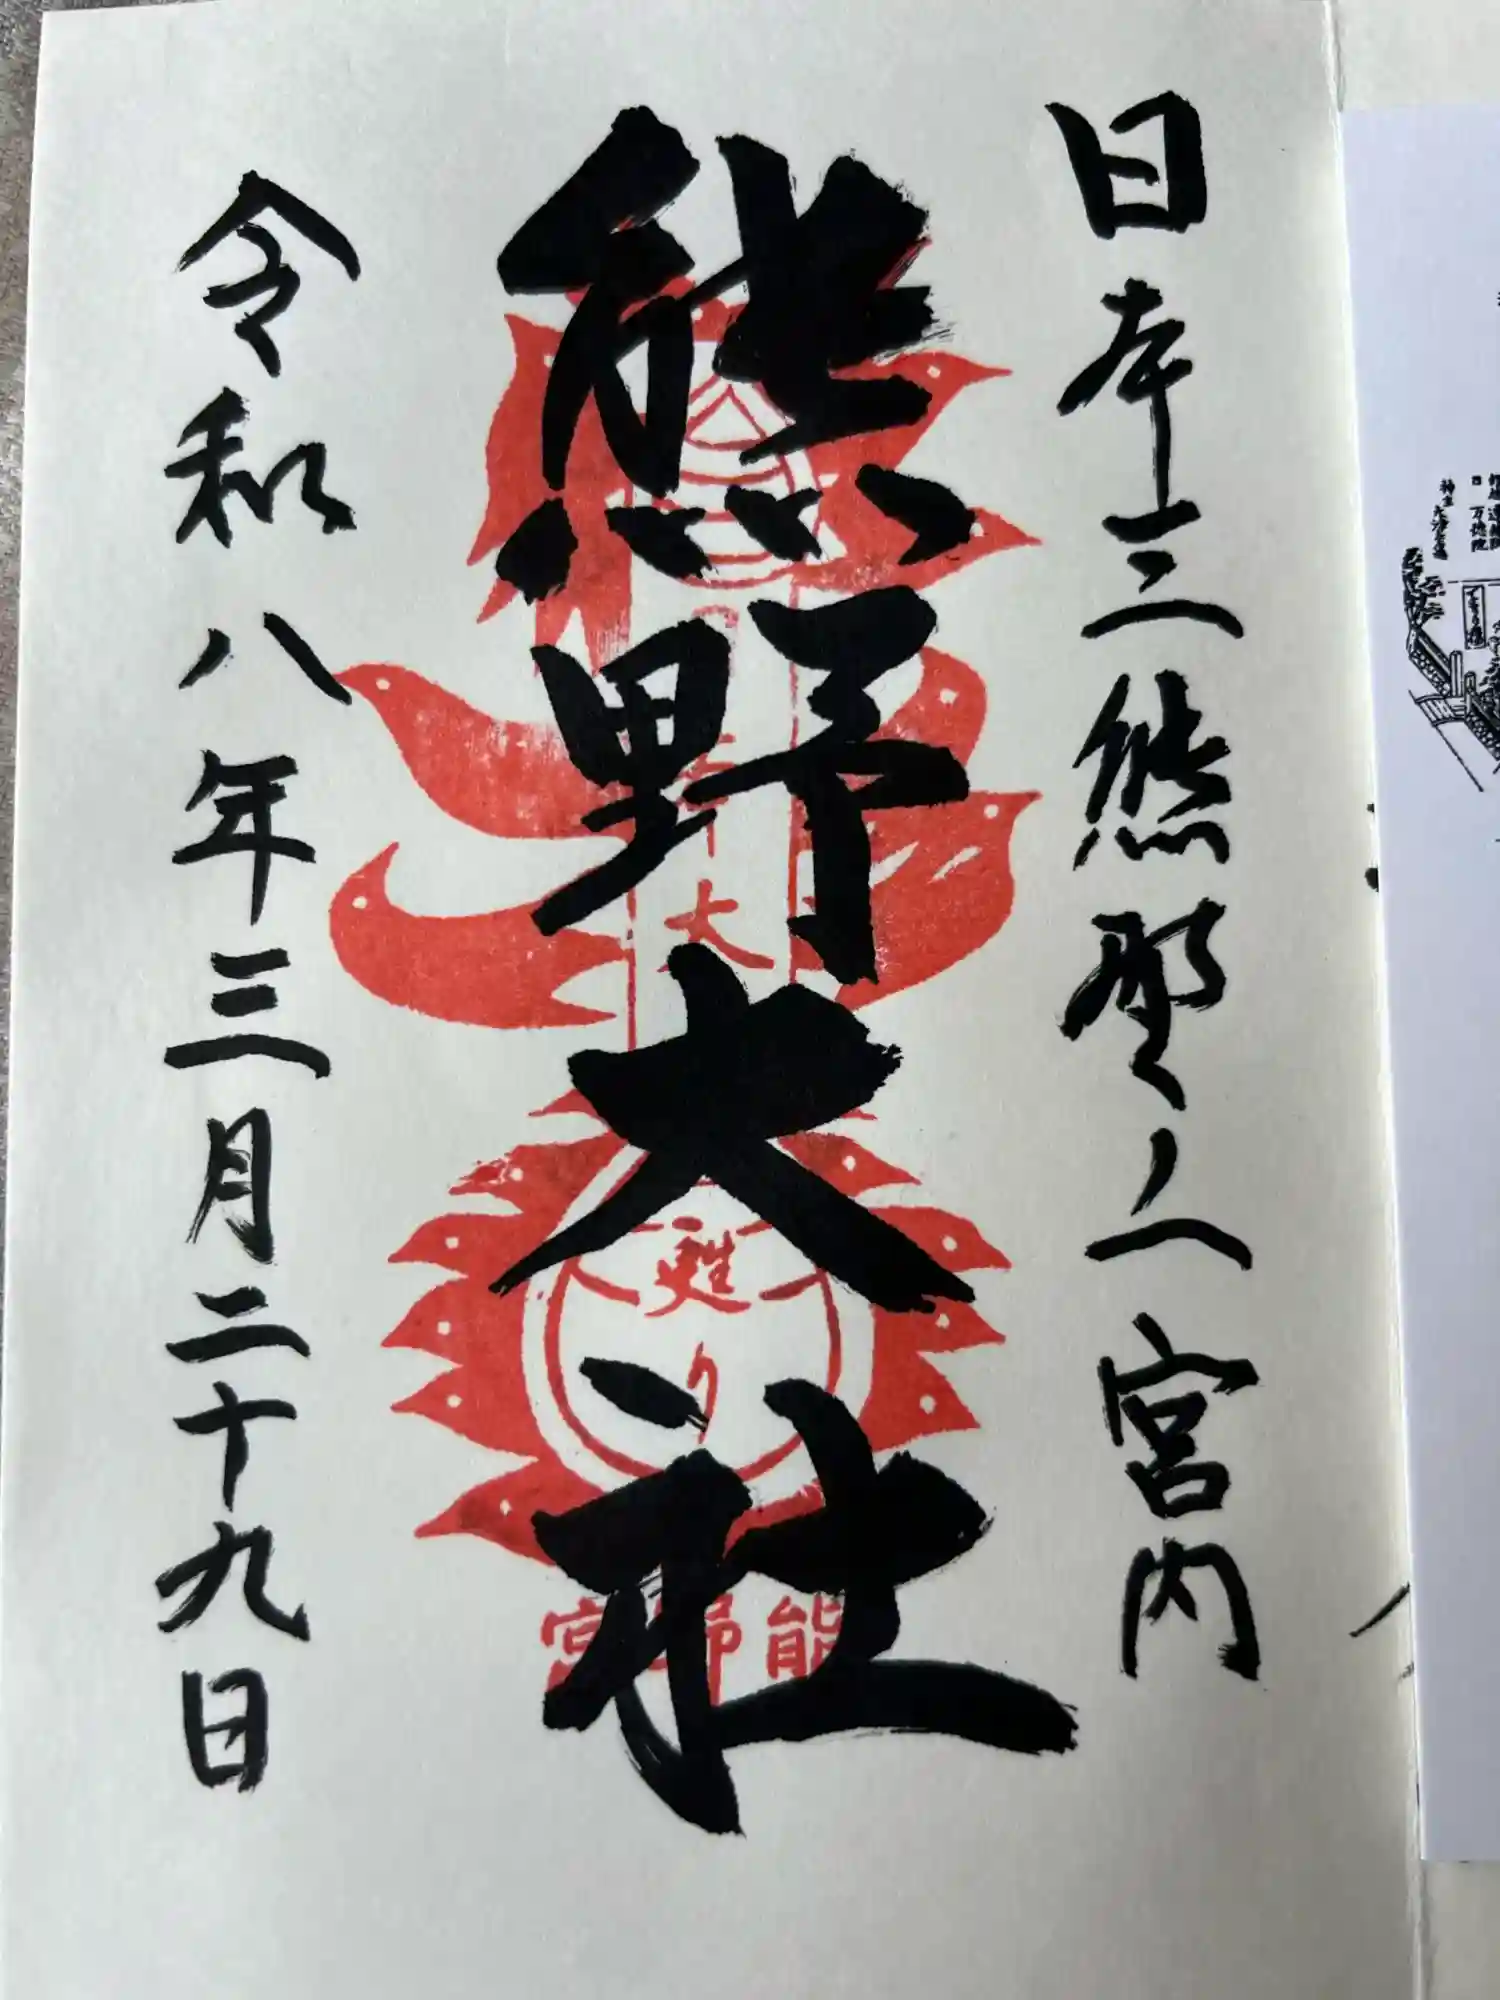 日本三熊野之一宮内
熊野大社
令和八年三月二十九日
大
甦
り
熊野宮